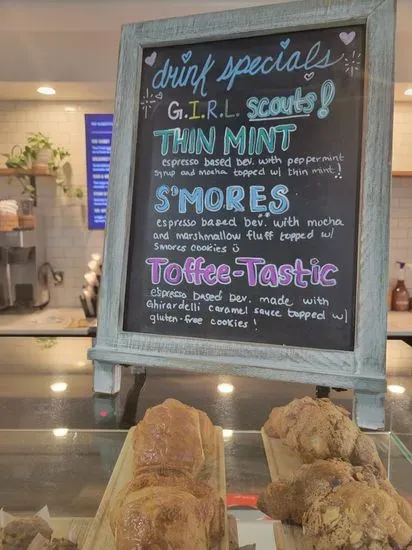 drink specials
G.I.R.L. scouts!
THIN MINT
espresso based bev. with peppermint
syrup and mocha topped w/ thin mint!
S'MORES
espresso based bev. with mocha
and marshmallow fluff topped w/
Smores cookies
Toffee-Tastic
espresso based bev. made with
Ghirardelli caramel sauce topped w/
gluten-free cookies!